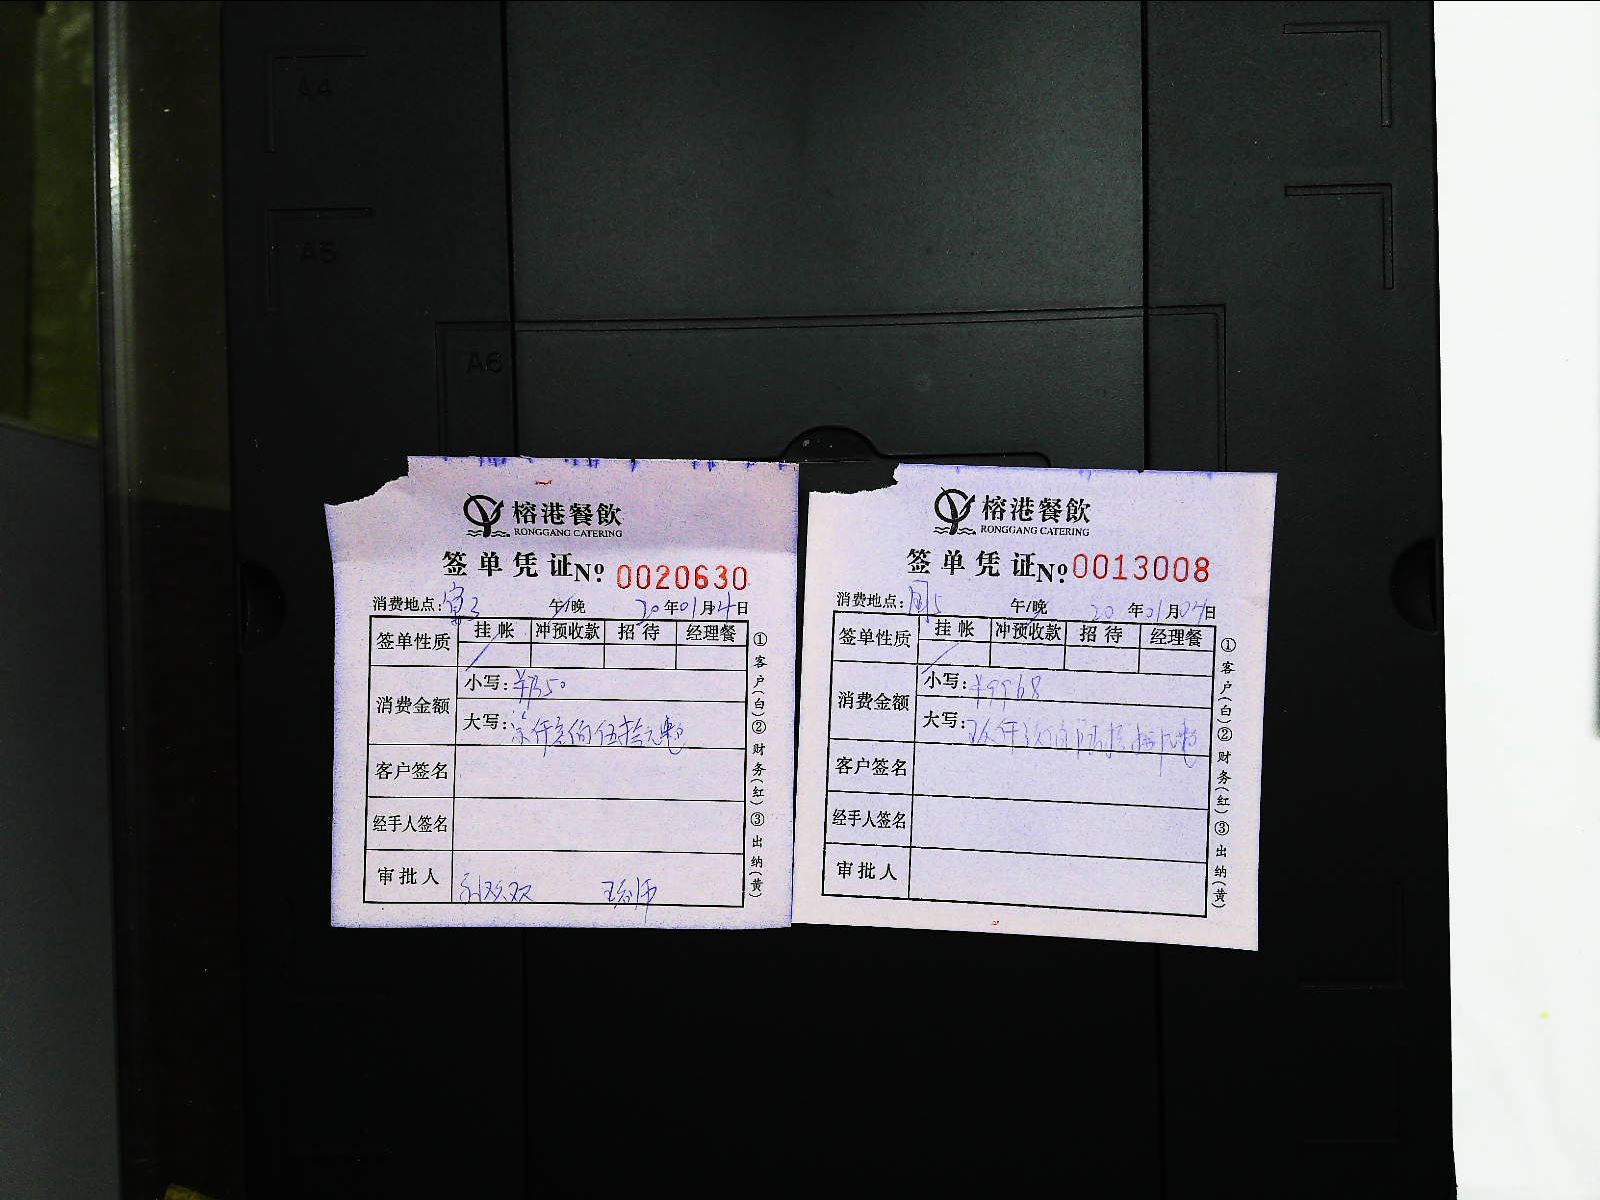 A4
A5
A6
榕港餐飲
RONGGANG CATERING
签单凭证№ 0020630
消费地点：富3 午/晚 20年01月14日
签单性质 挂帐 冲预收款 招待 经理餐
消费金额
小写：
大写：仟 佰伍拾元整
客户签名
经手人签名
审批人
①客户(白)②财务(红)③出纳(黄)
榕港餐飲
RONGGANG CATERING
签单凭证№ 0013008
消费地点： 午/晚 20年01月04日
签单性质 挂帐 冲预收款 招待 经理餐
消费金额
小写：¥9968
大写：玖仟玖佰陆拾捌元整
客户签名
经手人签名
审批人
①客户(白)②财务(红)③出纳(黄)